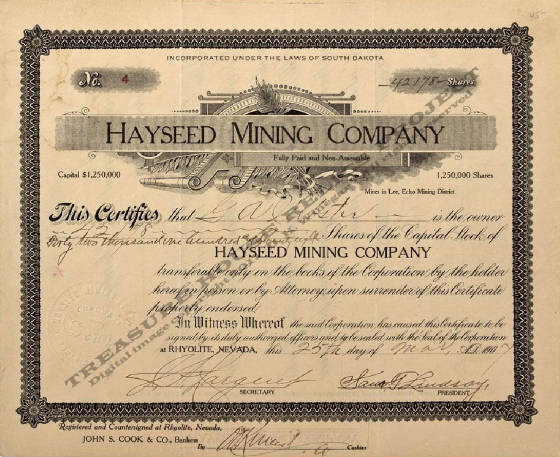 45-
INCORPORATED UNDER THE LAWS OF SOUTH DAKOTA
No. 4 42178- Shares
HAYSEED MINING COMPANY
Fully Paid and Non-Assessable
Capital $1,250,000 1,250,000 Shares
Mines in Lee, Echo Mining District
This Certifies that is the owner
Forty two thousand one hundred Shares of the Capital Stock of
HAYSEED MINING COMPANY
transferable only on the books of the Corporation by the holder
hereof in person or by Attorney upon surrender of this Certificate
properly endorsed.
In Witness Whereof the said Corporation has caused this Certificate to be
signed by its duly authorized officers and to be sealed with the Seal of the Corporation
at RHYOLITE, NEVADA, this 25th day of A.D. 190
SECRETARY PRESIDENT
Registered and Countersigned at Rhyolite, Nevada,
JOHN S. COOK & CO., Bankers
By Cashier
TREASURE HOUSE PROJECT
Digital image reserved